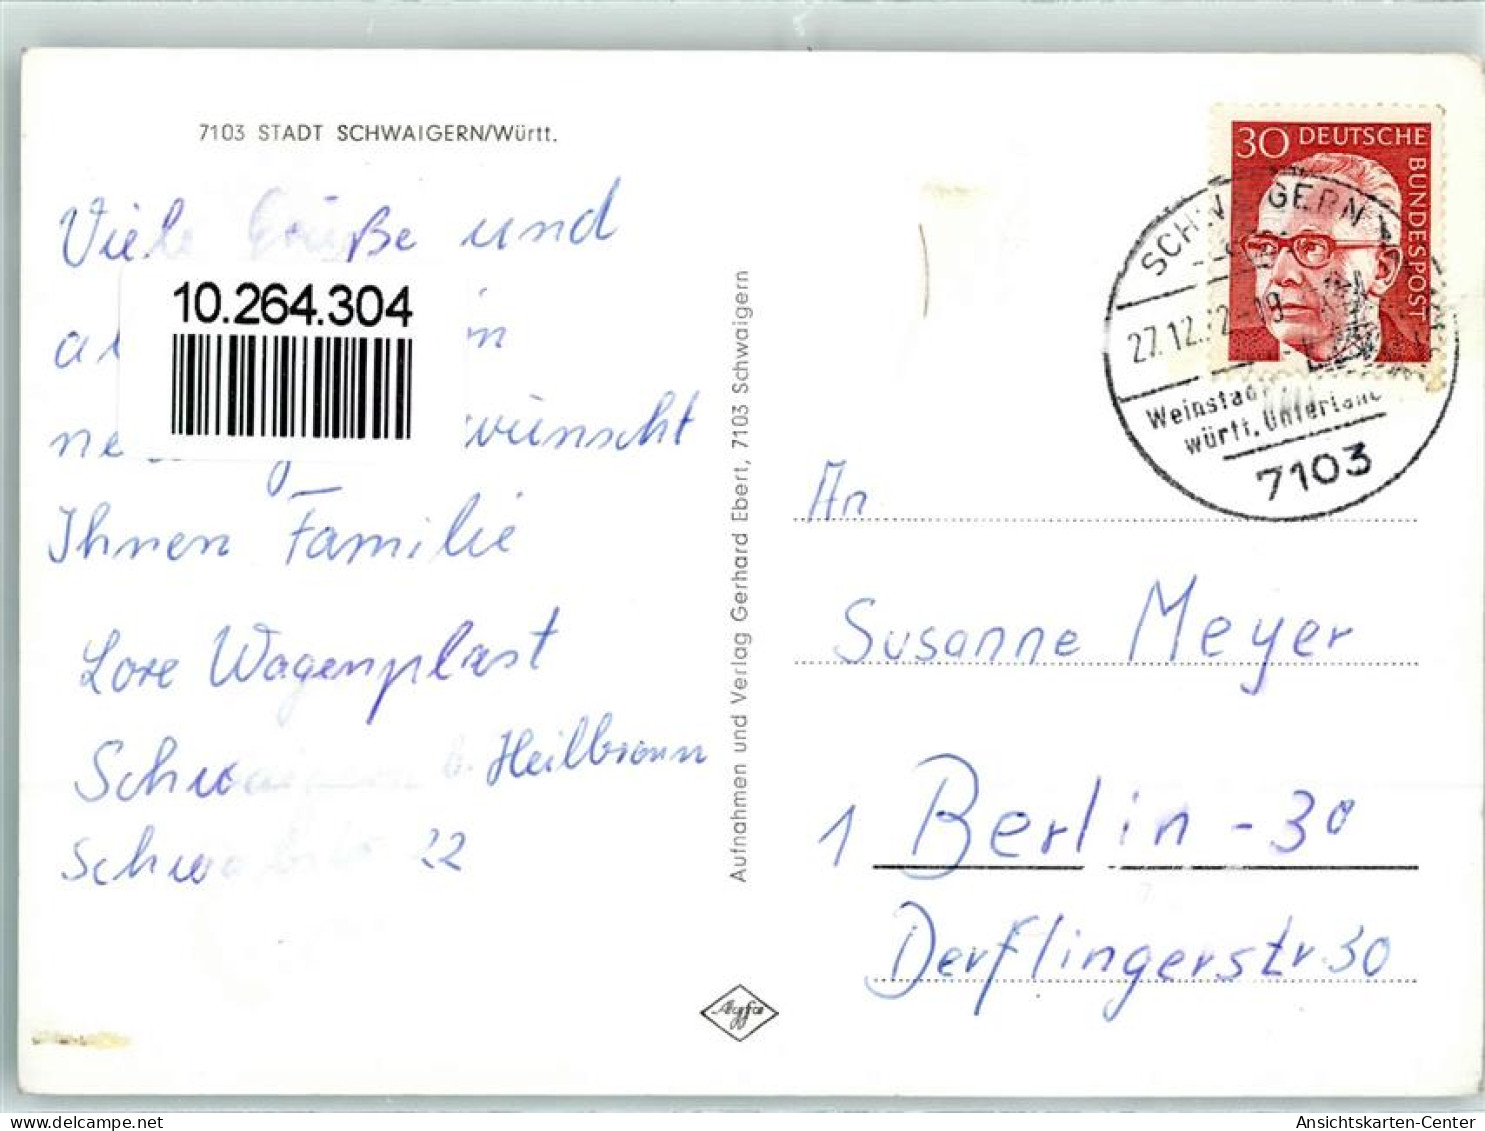 7103 STADT SCHWAIGERN/Württ.
Viele Grüße und
10.264.304
wünscht
Ihnen Familie
Lore Wagenplast
Schwaigern b. Heilbronn
22
Aufnahmen und Verlag Gerhard Ebert, 7103 Schwaigern
Agfa
30 DEUTSCHE
BUNDESPOST
27.12.
württ. Unterland
7103
An
Susanne Meyer
1 Berlin - 30
Derflingerstr. 30
Ansichtskarten-Center